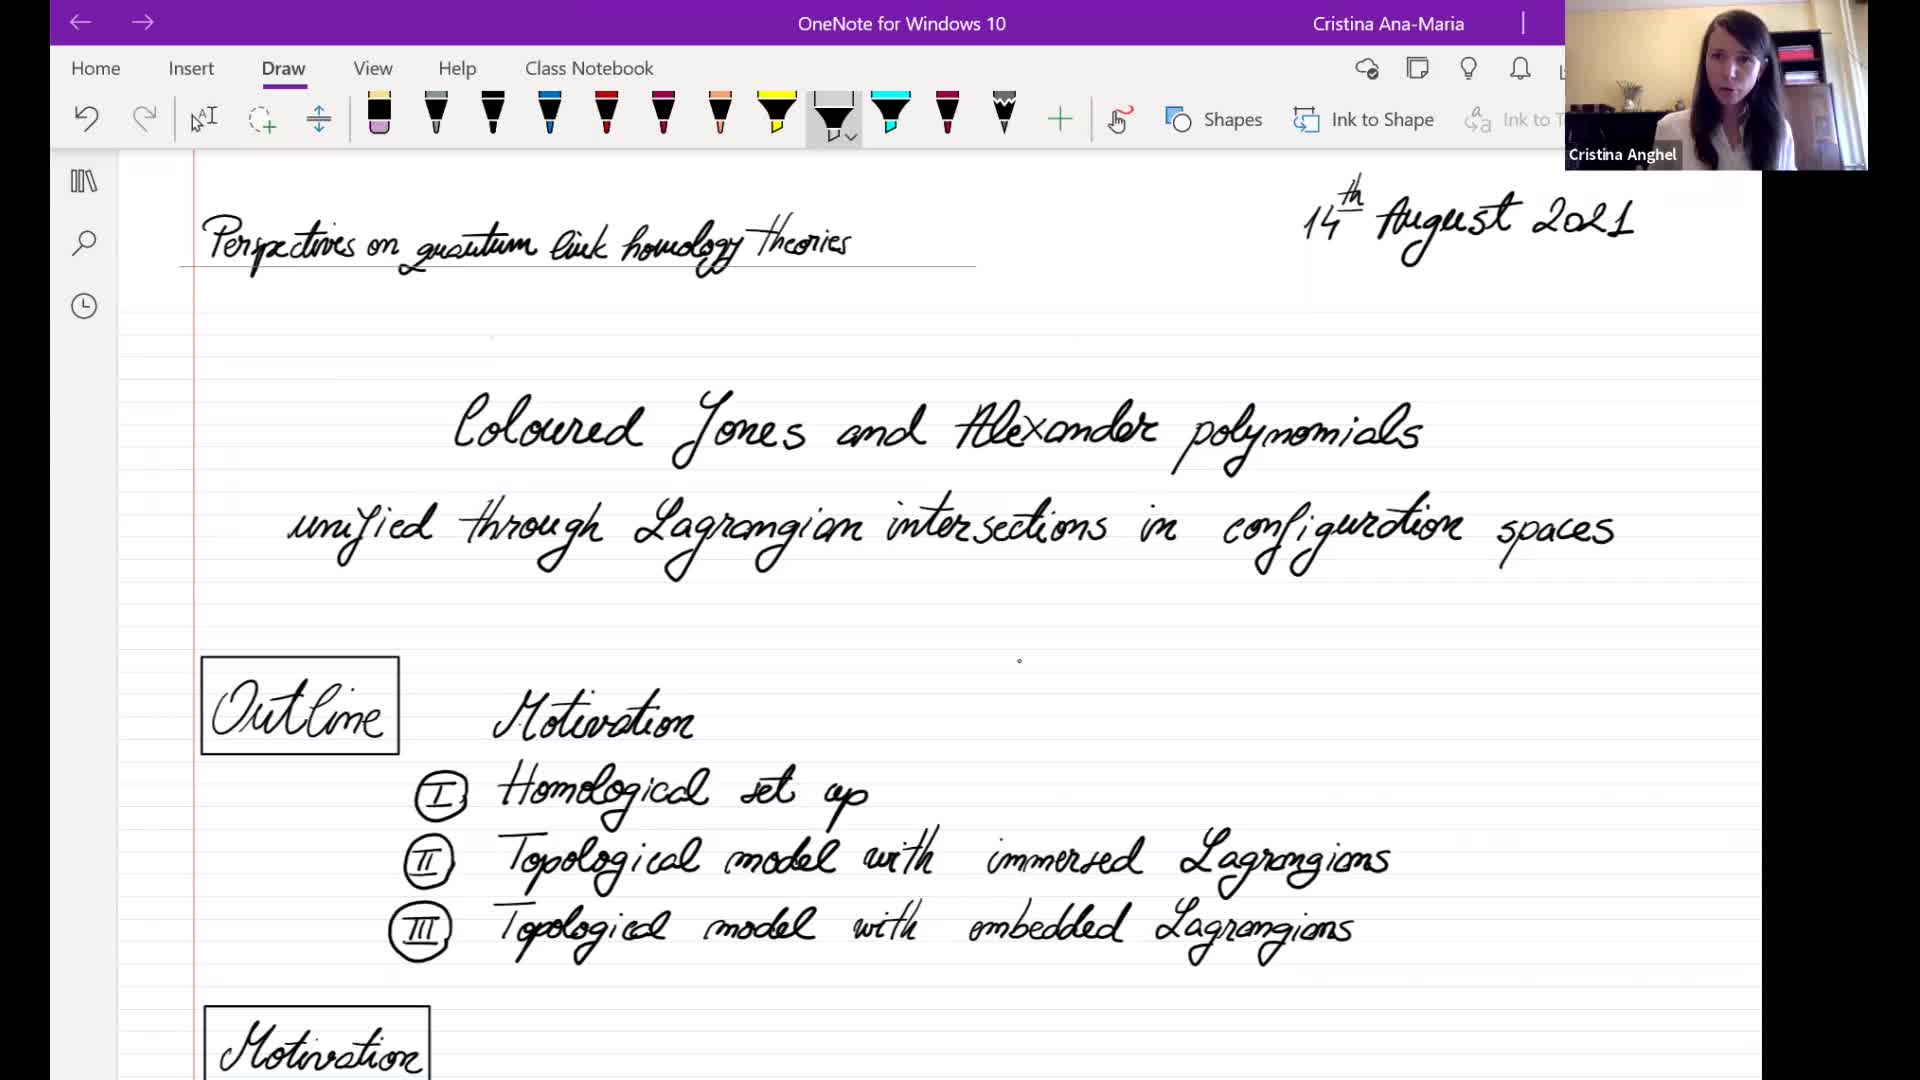 OneNote for Windows 10
Cristina Ana-Maria
Home Insert Draw View Help Class Notebook
Shapes Ink to Shape Ink to T
Cristina Anghel
14th August 2021
Perspectives on quantum link homology theories
Coloured Jones and Alexander polynomials
unified through Lagrangian intersections in configuration spaces
Outline Motivation
I Homological set up
II Topological model with immersed Lagrangians
III Topological model with embedded Lagrangians
Motivation